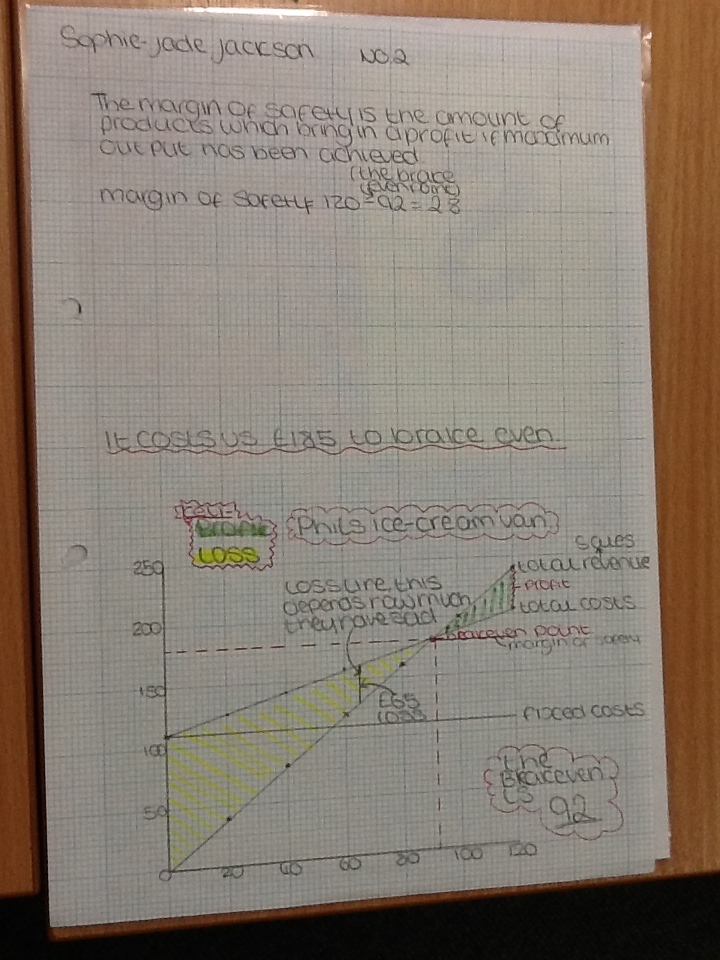 Sophie-jade jackson NO.2
The margin of safety is the amount of
products which bring in a profit if maximum
output has been achieved
(the brace
even point)
margin of safety 120 - 92 = 28
It costs us £185 to brake even
Profit
LOSS
Phils ice-cream van
sales
250
200
150
100
50
0
20 40 60 80 100 120
total revenue
profit
total costs
margin of safety
£65
LOSS
fixced costs
the
braceeven
is
92